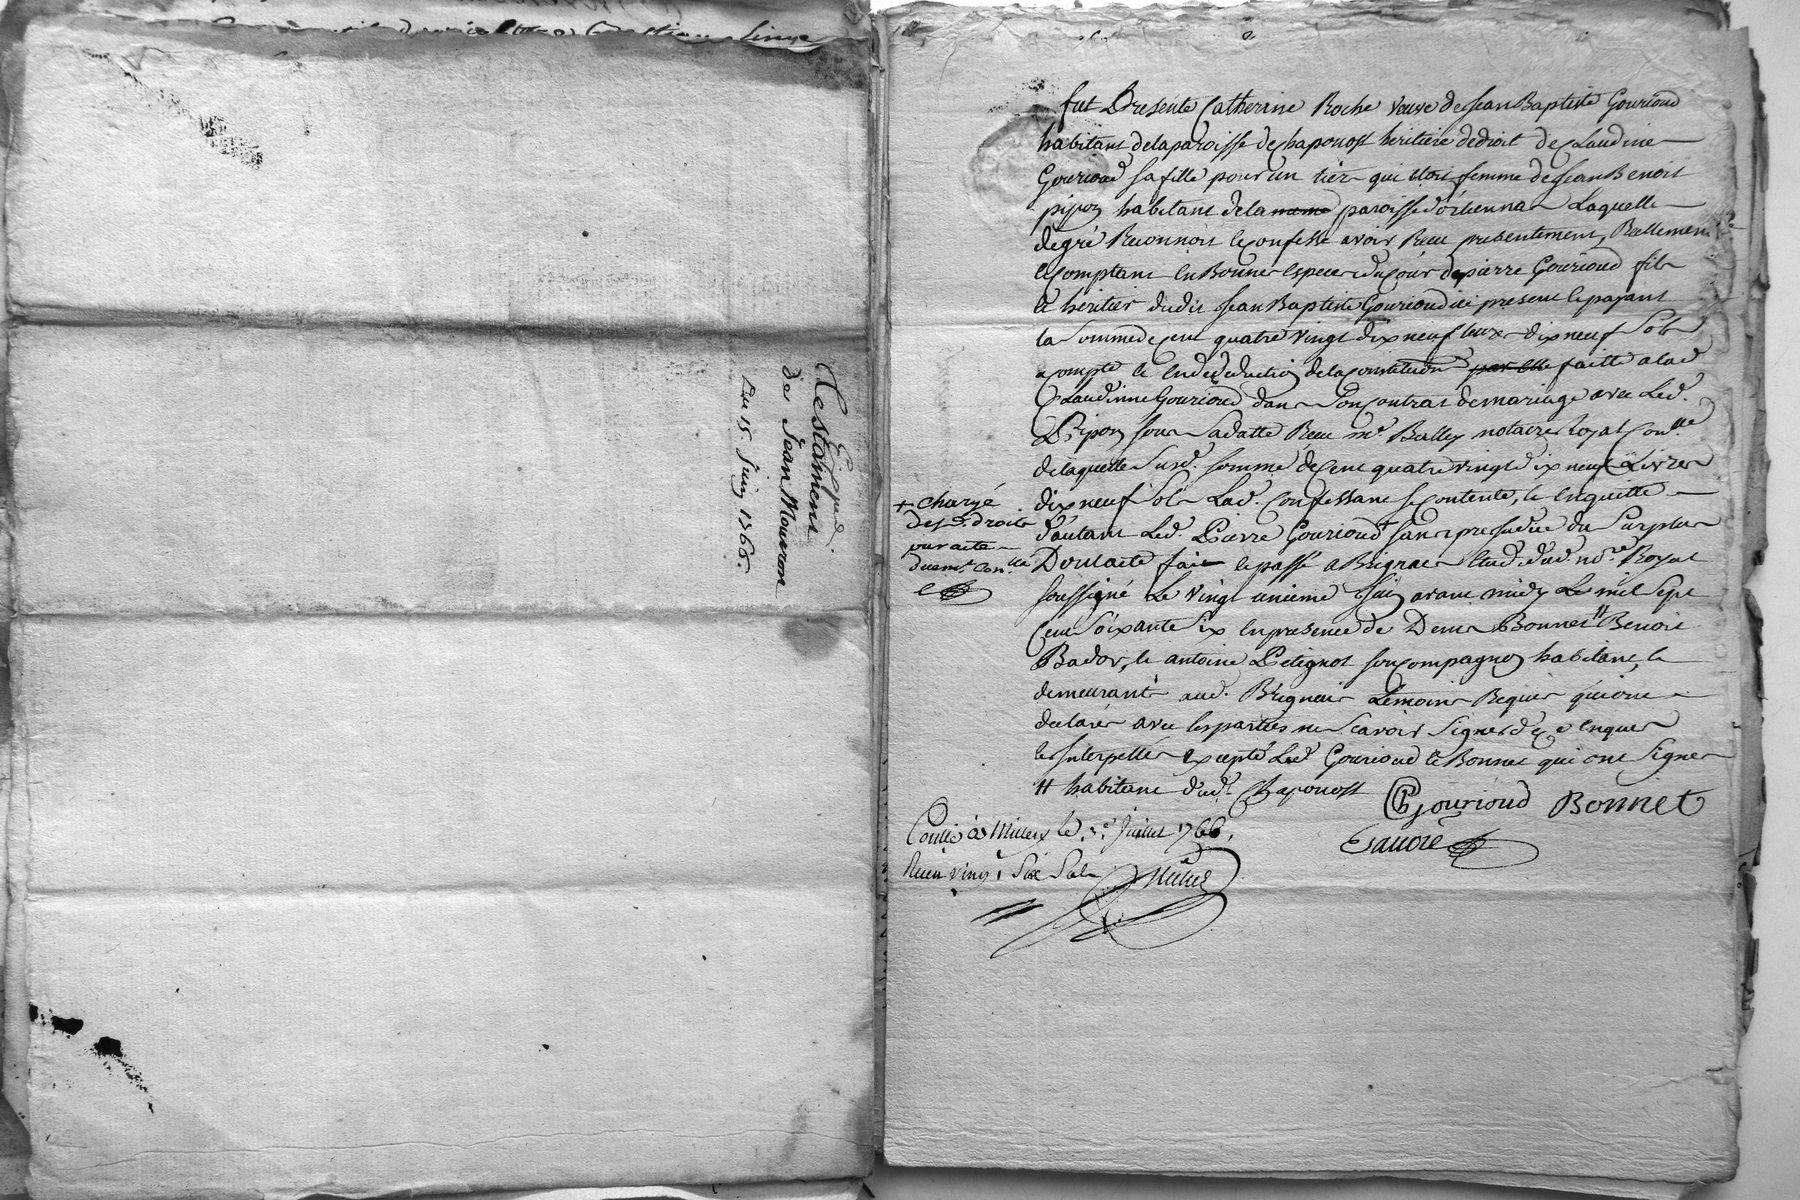 Testament
de Jean Mouron
Du 15. Juin 1766.
fut Presente Catherine Roche veuve de Jean Baptiste Gourioud
habitant de la paroisse de Chaponost heritiere de droit de Claudine
Gourioud sa fille pour un tier qui etoit femme de Jean Benoit
pipon habitant de la meme paroisse Laquelle
de gré Reconnoit & confesse avoir Receu presentement, Reellement
& comptant en Bonnes especes du cour de pierre Gourioud fils
& heritier dudit Jean Baptiste Gourioud ici present & payant
la Somme de Cent quatre vingt dix neuf livres dix neuf Sols
a compte & en deduction de la constitution par elle faitte a lad
Claudinne Gourioud dans Son Contrat de mariage avec Led.
Pipon sous Sa datte Receu me Balley notaire Royal
de laquelle Susd. somme de Cent quatre vingt dix neuf Livres
dix neuf Sols Lad. Confessant se contente, & en quitte
d'autant Led. Pierre Gourioud + sans prejudice du Surplus
+ chargé
des droits
Dont acte fait & passé a Brignais Etude dud. nore Royal
soussigné Le vingt unieme Juin avant midy Le mil Sept
Cent Soixante Six en presence de Denis Bonnet # Benoit
Bador, & antoine Petignot son compagnon habitant, &
demeurant aud. Brignais temoins Requis qui ont
declaré avec les parties ne Scavoir Signer de ce enquis
& Interpellés excepté Led Gourioud & Bonnet qui ont Signes
# habitant dud. Chaponost
Gourioud Bonnet
Conllé à Millery le 3e Juillet 1766.
Receu vingt Six Sols